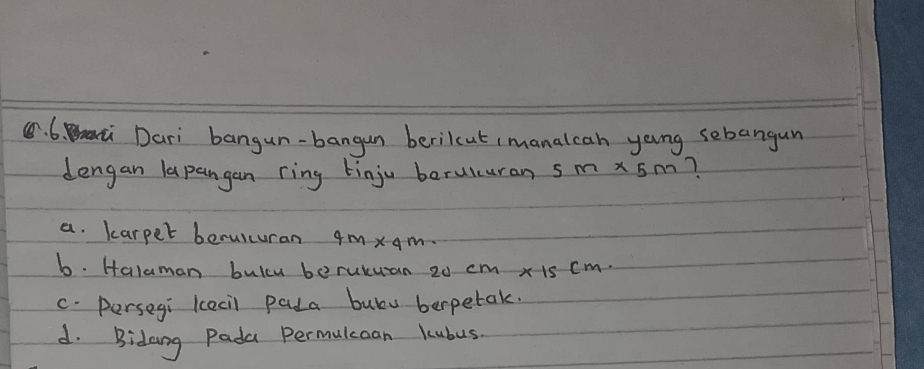 6. Dari bangun-bangun berikut, manakah yang sebangun
dengan lapangan ring tinju berukuran 5 m x 5 m?
a. karpet berukuran 4 m x 4 m.
b. Halaman buku berukuran 20 cm x 15 cm.
c. Persegi kecil pada buku berpetak.
d. Bidang pada Permukaan kubus.